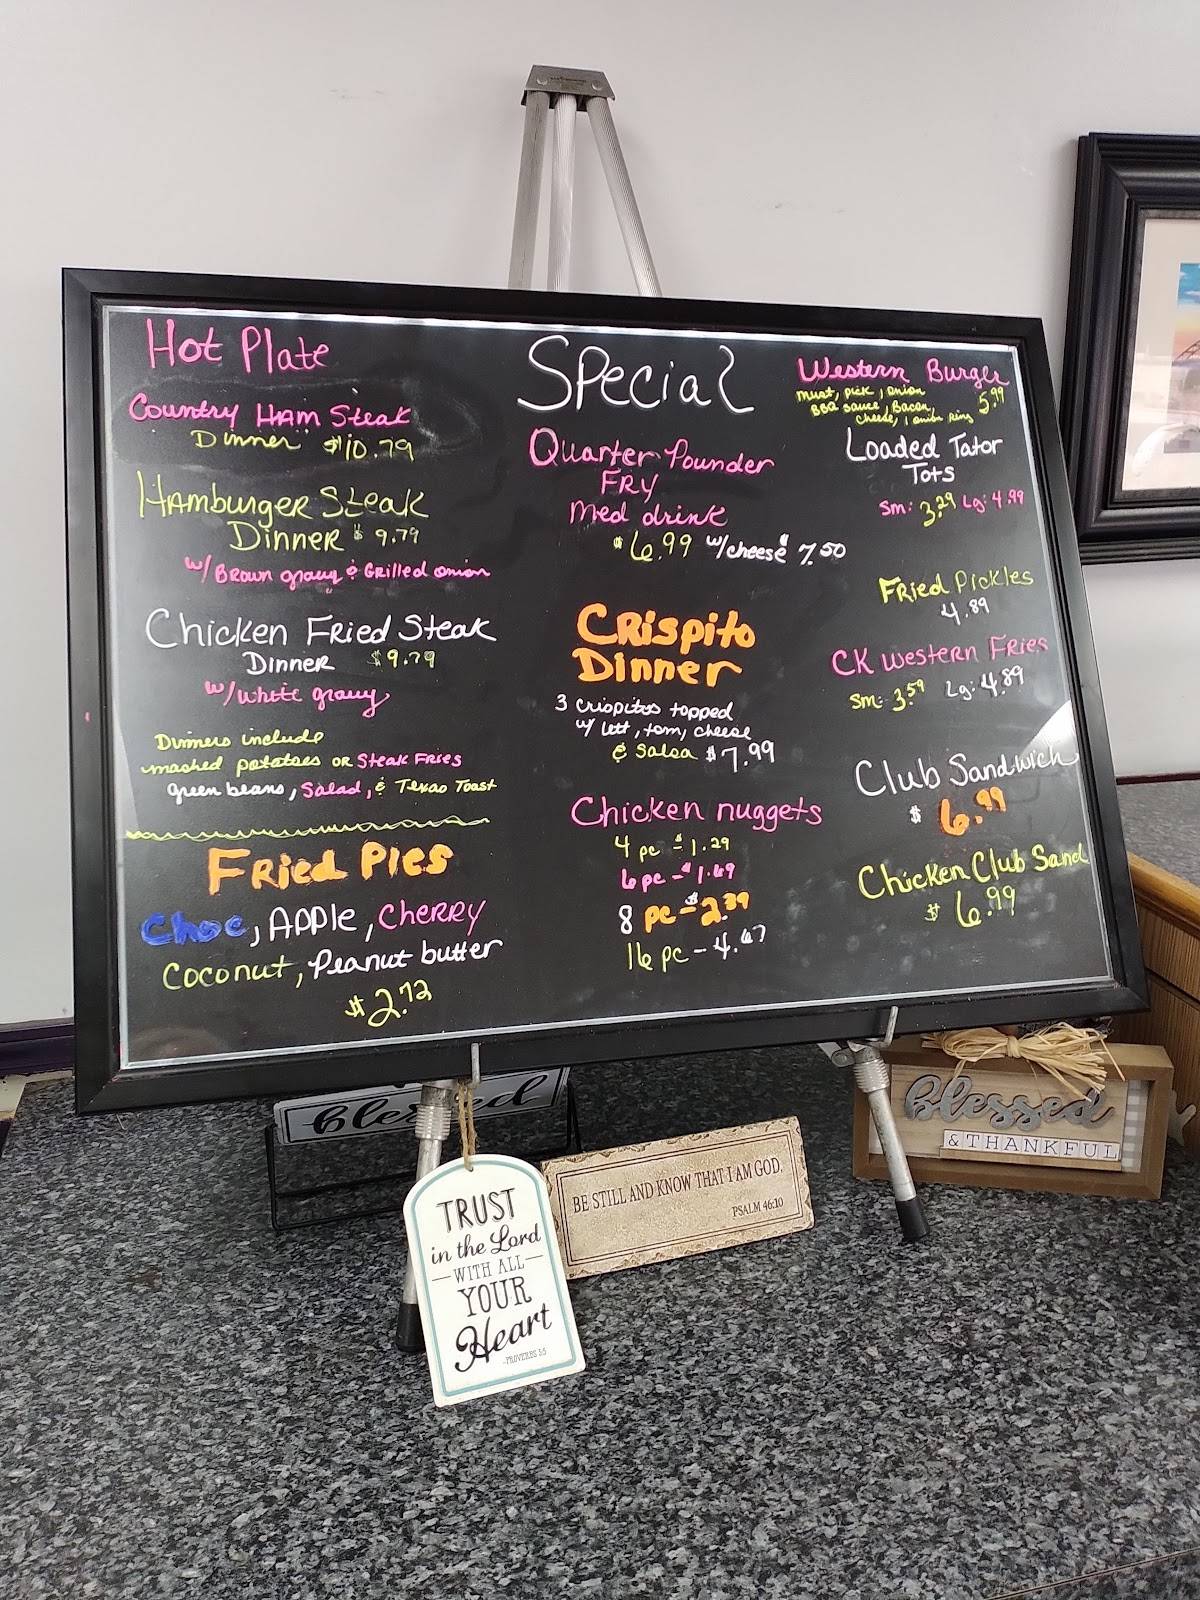 Hot Plate
Country Ham Steak
Dinner $10.79
Hamburger Steak
Dinner $9.79
w/ Brown gravy & Grilled onion
Chicken Fried Steak
Dinner $9.79
w/ white gravy
Dinners include
mashed potatoes or Steak Fries
green beans, Salad, & Texas Toast
Fried Pies
Choc, Apple, Cherry
Coconut, Peanut butter
$2.72
Special
Quarter Pounder
Fry
Med drink
$6.99 w/cheese $7.50
Crispito
Dinner
3 crispitos topped
w/ lett, tom, cheese
& Salsa $7.99
Chicken nuggets
4 pc - $1.29
6 pc - $1.69
8 pc - $2.39
16 pc - 4.67
Western Burger
must, pick, onion 5.99
BBQ sauce, Bacon,
cheese, 1 onion Ring
Loaded Tator
Tots
Sm: 3.29 Lg: 4.99
Fried Pickles
4.89
CK Western Fries
Sm: 3.59 Lg: 4.89
Club Sandwich
$6.99
Chicken Club Sand
$6.99
blessed
TRUST
in the Lord
WITH ALL
YOUR
Heart
-PROVERBS 3:5
BE STILL AND KNOW THAT I AM GOD.
PSALM 46:10
blessed
& THANKFUL